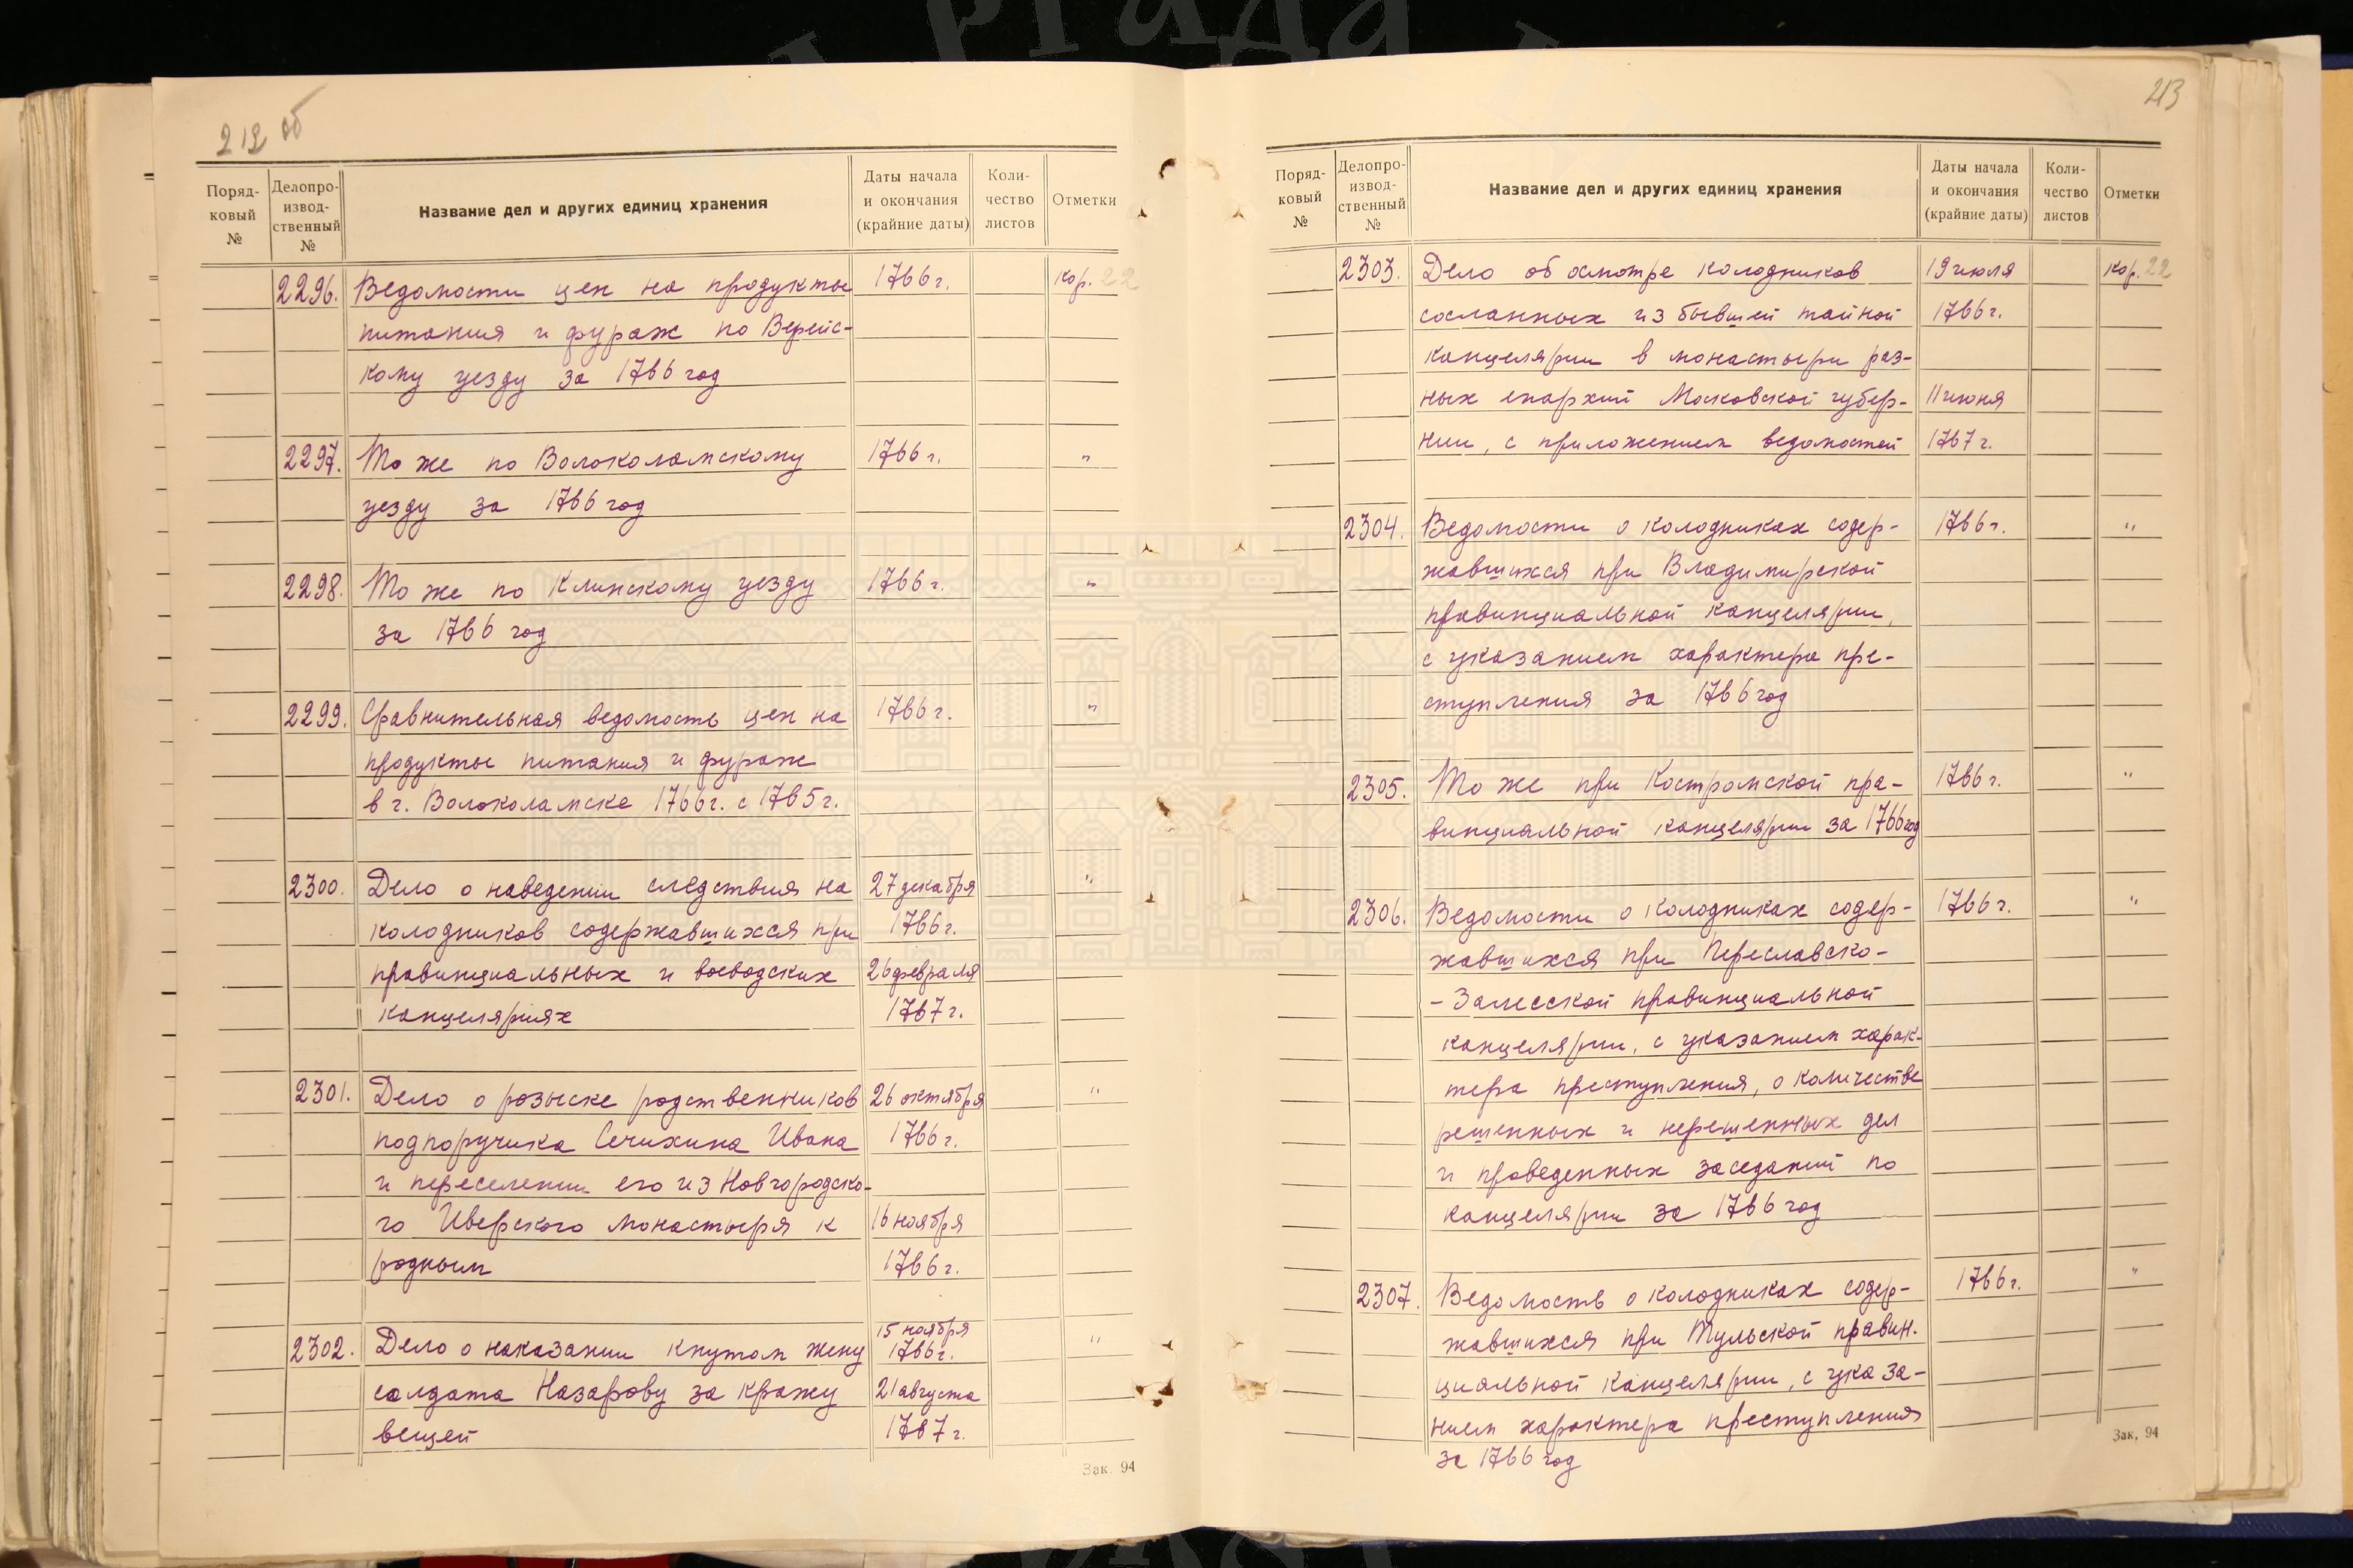 212 об
Поряд-
ковый
№
Делопро-
извод-
ственный
№
Название дел и других единиц хранения
Даты начала
и окончания
(крайние даты)
Коли-
чество
листов
Отметки
2296. Ведомости цен на продукты 1766 г. кор. 22
питания и фураж по Верейс-
кому уезду за 1766 год
2297. То же по Волоколамскому 1766 г. "
уезду за 1766 год
2298. То же по Клинскому уезду 1766 г. "
за 1766 год
2299. Сравнительная ведомость цен на 1766 г. "
продукты питания и фураж
в г. Волоколамске 1766 г. с 1765 г.
2300. Дело о наведении следствия на 27 декабря "
колодников содержавшихся при 1766 г.
провинциальных и воеводских 26 февраля
канцеляриях 1767 г.
2301. Дело о розыске родственников 26 октября "
подпоручика Сечихина Ивана 1766 г.
и переселении его из Новгородско-
го Иверского монастыря к 16 ноября
родным 1766 г.
15 ноября
2302. Дело о наказании кнутом жену 1766 г. "
солдата Назарову за кражу 21 августа
вещей 1787 г.
Зак. 94
213
Поряд-
ковый
№
Делопро-
извод-
ственный
№
Название дел и других единиц хранения
Даты начала
и окончания
(крайние даты)
Коли-
чество
листов
Отметки
2303. Дело об осмотре колодников 19 июля кор. 22
сосланных из бывшей тайной 1766 г.
канцелярии в монастыри раз-
ных епархий Московской губер- 11 июня
нии, с приложением ведомостей 1767 г.
2304. Ведомости о колодниках содер- 1766 г. "
жавшихся при Владимирской
провинциальной канцелярии,
с указанием характера пре-
ступления за 1766 год
2305. То же при Костромской про- 1766 г. "
винциальной канцелярии за 1766 год
2306. Ведомости о колодниках содер- 1766 г. "
жавшихся при Переславско-
- Залесской провинциальной
канцелярии, с указанием харак-
тера преступления, о количестве
решенных и нерешенных дел
и проведенных заседаний по
канцелярии за 1766 год
2307. Ведомость о колодниках содер- 1766 г. "
жавшихся при Тульской провин.
циальной канцелярии, с указа-
нием характера преступления
за 1766 год
Зак. 94